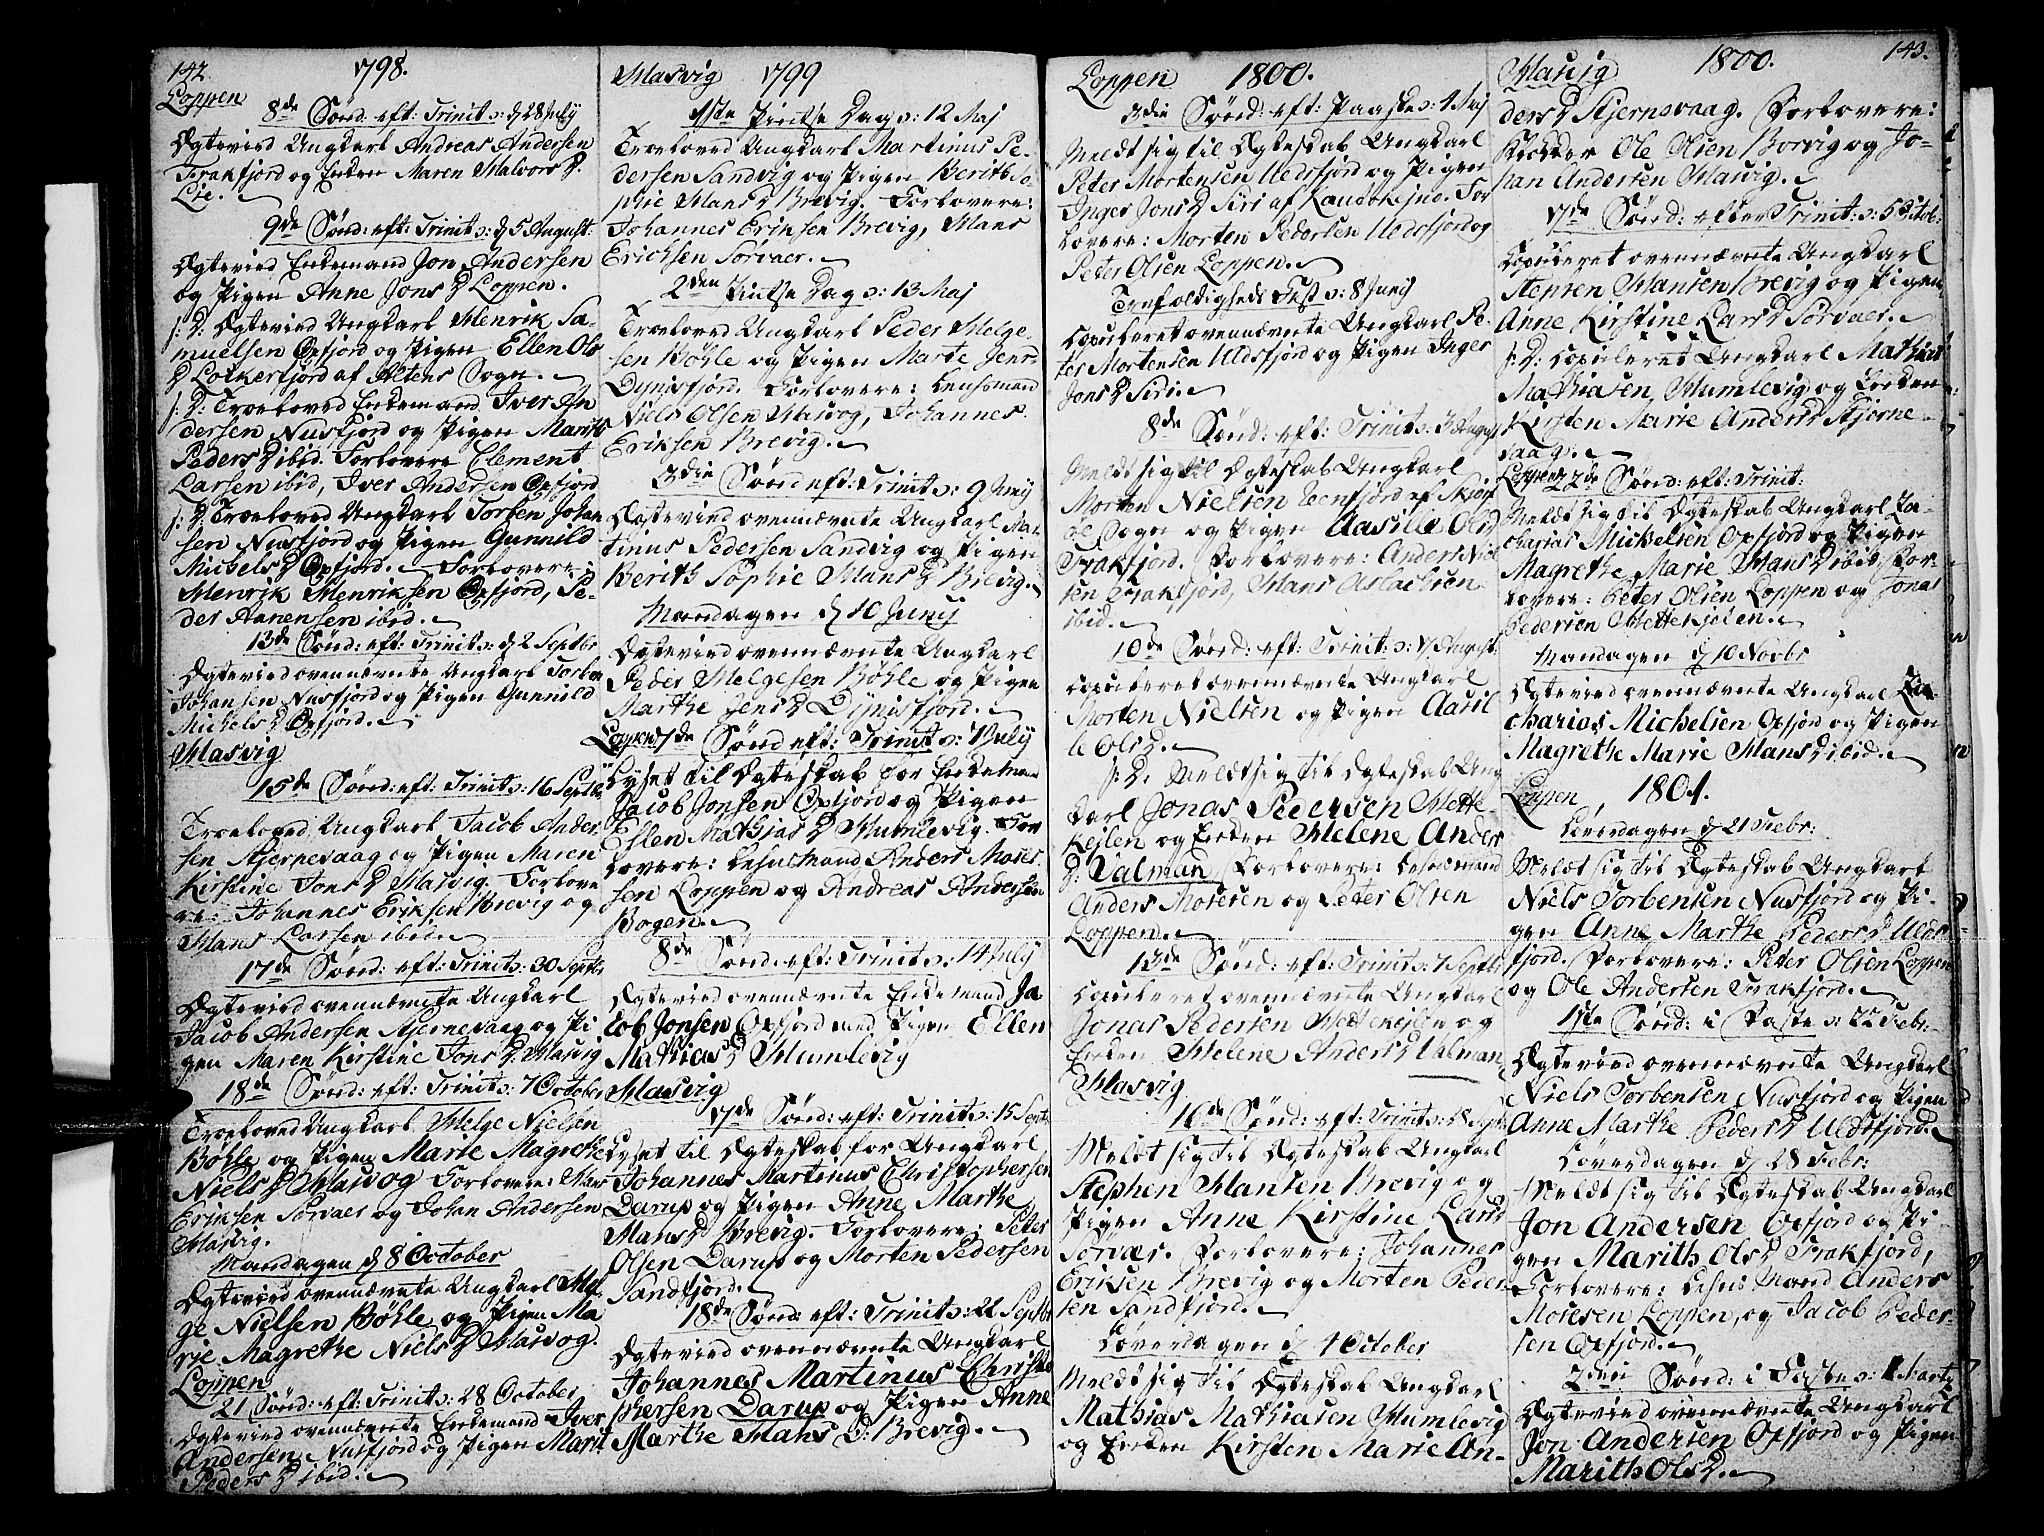 142. 1798.
Loppen
8de Sønd: eft: Trinit: d 28 July
Ægtevied Ungkarl Andreas Andersen
Frakfjord og Enken Maren Halvors D.
Lie.
9de Sønd: eft: Trinit: d 5 August:
Ægtevied Enkemand Jon Andersen
og Pigen Anne Jons D Loppen.
s: D: Ægtevied Ungkarl Henrik Sa-
muelsen Øxfjord og Pigen Ellen Ols
D Lokkerfjord af Altens Sogn.
s: D: Troeloved Enkemand Iver An
dersen Nusfjord og Pigen Marith
Peders D ibid. Forlovere Clement
Larsen ibid, Iver Andersen Øxfjord
s: D: Troeloved Ungkarl Torben Johan
sen Nusfjord og Pigen Gunnild
Michels D Øxfjord. Forlovere:
Henrik Henriksen Øxfjord, Pe-
der Aanensen ibid.
13de Sønd: eft: Trinit: d 2 Septbr
Ægtevied ovennævnte Ungkarl Torben
Johansen Nusfjord og Pigen Gunnild
Michels D Øxfjord.
Hasvig
15de Sønd: eft: Trinit: 16 Septbr
Troeloved Ungkarl Jacob Ander-
sen Stjernevaag og Pigen Maren
Kirstine Jons D Hasvig. Forlove
re: Johannes Eriksen Brevig og
Hans Larsen ibid.
17de Sønd: eft: Trinit: 30 Septbr
Ægtevied ovennævnte Ungkarl
Jacob Andersen Stjernevaag og Pi
gen Maren Kirstine Jons D Hasvig
18de Sønd: eft: Trinit: 7 October
Troeloved Ungkarl Helge Nielsen
Bøhle og Pigen Marie Magrethe
Niels D Hasvog Forlovere: Hans
Eriksen Sørvaer og Johan Andersen
Hasvig.
Mandagen d 8 October
Ægtevied ovennævnte Ungkarl Hel
ge Nielsen Bøhle og Pigen Ma
rie Magrethe Niels D Hasvog.
Loppen
21 Sønd: eft: Trinit: 28 October
Ægtevied ovennævnte Enkemand Iver
Andersen Nusfjord og Pigen Marit
Peders D ibid.
Hasvig 1799
1ste Pintse Dag: 12 Maj
Troeloved Ungkarl Martinus Pe-
dersen Sandvig og Pigen Berith So-
phie Hans D Brevig. Forlovere:
Johannes Eriksen Brevig, Hans
Erichsen Sørvaer.
2den Pintse Dag: 13 Maj
Troeloved Ungkarl Peder Helge
sen Bøhle og Pigen Marte Jens D
Dynisfjord. Forlovere: Lensmand
Niels Olsen Hasvog, Johannes
Eriksen Brevig.
3die Sønd eft: Trinit: 9 Junij
Ægtevied ovennævnte Ungkarl Mar-
tinus Pedersen Sandvig og Pigen
Berith Sophie Hans D Brevig.
Mandagen d 10 Junij
Ægtevied ovennævnte Ungkarl
Peder Helgesen Bøhle og Pigen
Marthe Jens D Dynisfjord.
Loppen 7de Sønd eft: Trinit: 7 July
Lyset til Ægteskab for Enkeman
Jacob Jonsen Øxfjord og Pigen
Ellen Mathias D Humlevig. For
lovere: Lehnsmand Anders Moses-
sen Loppen og Andreas Andersen
Bogen.
8de Sønd: eft: Trinit: 14 July
Ægtevied ovennævnte Enkemand Ja
cob Jonsen Øxfjord med Pigen Ellen
Mathias D Humlevig
Hasvig
17de Sønd: eft: Trinit: 15 Septbr
Lyset til Ægteskab for Ungkarl
Johannes Martinus Christophersen
Darup og Pigen Anne Marthe
Hans D Brevig. Forlovere: Peter
Olsen Darup og Morten Pedersen
Sandfjord.
18de Sønd: eft: Trinit: 22 Septbr
Ægtevied ovennævnte Ungkarl
Johannes Martinus Christo
phersen Darup og Pigen Anne
Marthe Hans D: Brevig.
Loppen 1800.
3die Sønd: eft: Paaske: 4 Maj
Meldt sig til Ægteskab Ungkarl
Peter Mortensen Uldsfjord og Pigen
Inger Jons D Siri af Kautokejno. For
lovere: Morten Pedersen Uldsfjord og
Peter Olsen Loppen.
Trefoldigheds Fest: 8 Junij
Copuleret ovennævnte Ungkarl Pe-
ter Mortensen Uldsfjord og Pigen Inger
Jons D Siri.
8de Sønd: eft: Trinit: 3 August
Meldt sig til Ægteskab Ungkarl
Morten Nielsen af Skjerf
øe Sogn og Pigen Aasille Ols D
Frakfjord. Forlovere: Anders Niel
sen Frakfjord, Hans Aslachsen
ibid.
10de Sønd: eft: Trinit: 17 August:
Copuleret ovennævnte Ungkarl
Morten Nielsen og Pigen Aasil
le Ols D.
s: D: Meldt sig til Ægteskab Ung
karl Jonas Pedersen Mette-
kejlen og Enken Helene Anders
D: Valman Forlovere: Lehnsmand
Anders Mosesen og Peter Olsen
Loppen.
13de Sønd: eft: Trinit: 7 Septbr
Copuleret ovennævnte Ungkarl
Jonas Pedersen Mettekejlen og
Enken Helene Anders D Valman
Hasvig
16de Sønd: eft: Trinit: 28 Septbr
Meldt sig til Ægteskab Ungkarl
Stephen Hansen Brevig og
Pigen Anne Kirstine Lars D
Sørvær. Forlovere: Johannes
Eriksen Brevig og Morten Peder-
sen Sandfjord.
Løverdagen d 4 October
Meldt sig til Ægteskab Ungkarl
Mathias Mathiasen Humlevig
og Enken Kirsten Marie An-
Hasvig 1800. 143.
ders D Stjernevaag. Forlovere:
Ole Olsen Borvig og Jo-
han Andersen Hasvig.
17de Sønd: efter Trinit: 5 Octob:
Copuleret ovennævnte Ungkarl
Stensen Hansen Brevig og Pigen
Anne Kirstine Lars D Sørvaer.
s: D: Copuleret Ungkarl Mathias
Mathiasen Humlevig og Enken
Kirsten Marie Anders D Stjerne-
vaag.
Loppen 22de Sønd: eft: Trinit:
Meldt sig til Ægteskab Ungkarl Za-
charias Michelsen Øxfjord og Pigen
Magrethe Marie Hans D ibid. For-
lovere: Peter Olsen Loppen og Jonas
Pedersen Mettekejlen.
Mandagen d 10 Novbr
Ægtevied ovennævnte Ungkarl Za-
charias Michelsen Øxfjord og Pigen
Magrethe Marie Hans D ibid.
Loppen 1801.
Løverdagen d 21 Febr:
Meldt sig til Ægteskab Ungkarl
Niels Torbensen Nusfjord og Pi-
gen Anne Marthe Peders D Ulds-
fjord. Forlovere: Peter Olsen Loppen
og Ole Andersen Frakfjord.
1ste Sønd: i Faste: 22 Febr:
Ægtevied ovennævnte Ungkarl
Niels Torbensen Nusfjord og Pigen
Anne Marthe Peders D Uldsfjord.
Løverdagen d 28 Febr:
Meldt sig til Ægteskab Ungkarl
Jon Andersen Øxfjord og Pi-
gen Marith Ols D Frakfjord,
Forlovere: Lehns Mand Anders
Mosesen Loppen, og Jacob Peder-
sen Øxfjord.
2den Sønd: i Faste: 1 Marts
Ægtevied ovennævnte Ungkarl
Jon Andersen Øxfjord og Pigen
Marith Ols D.